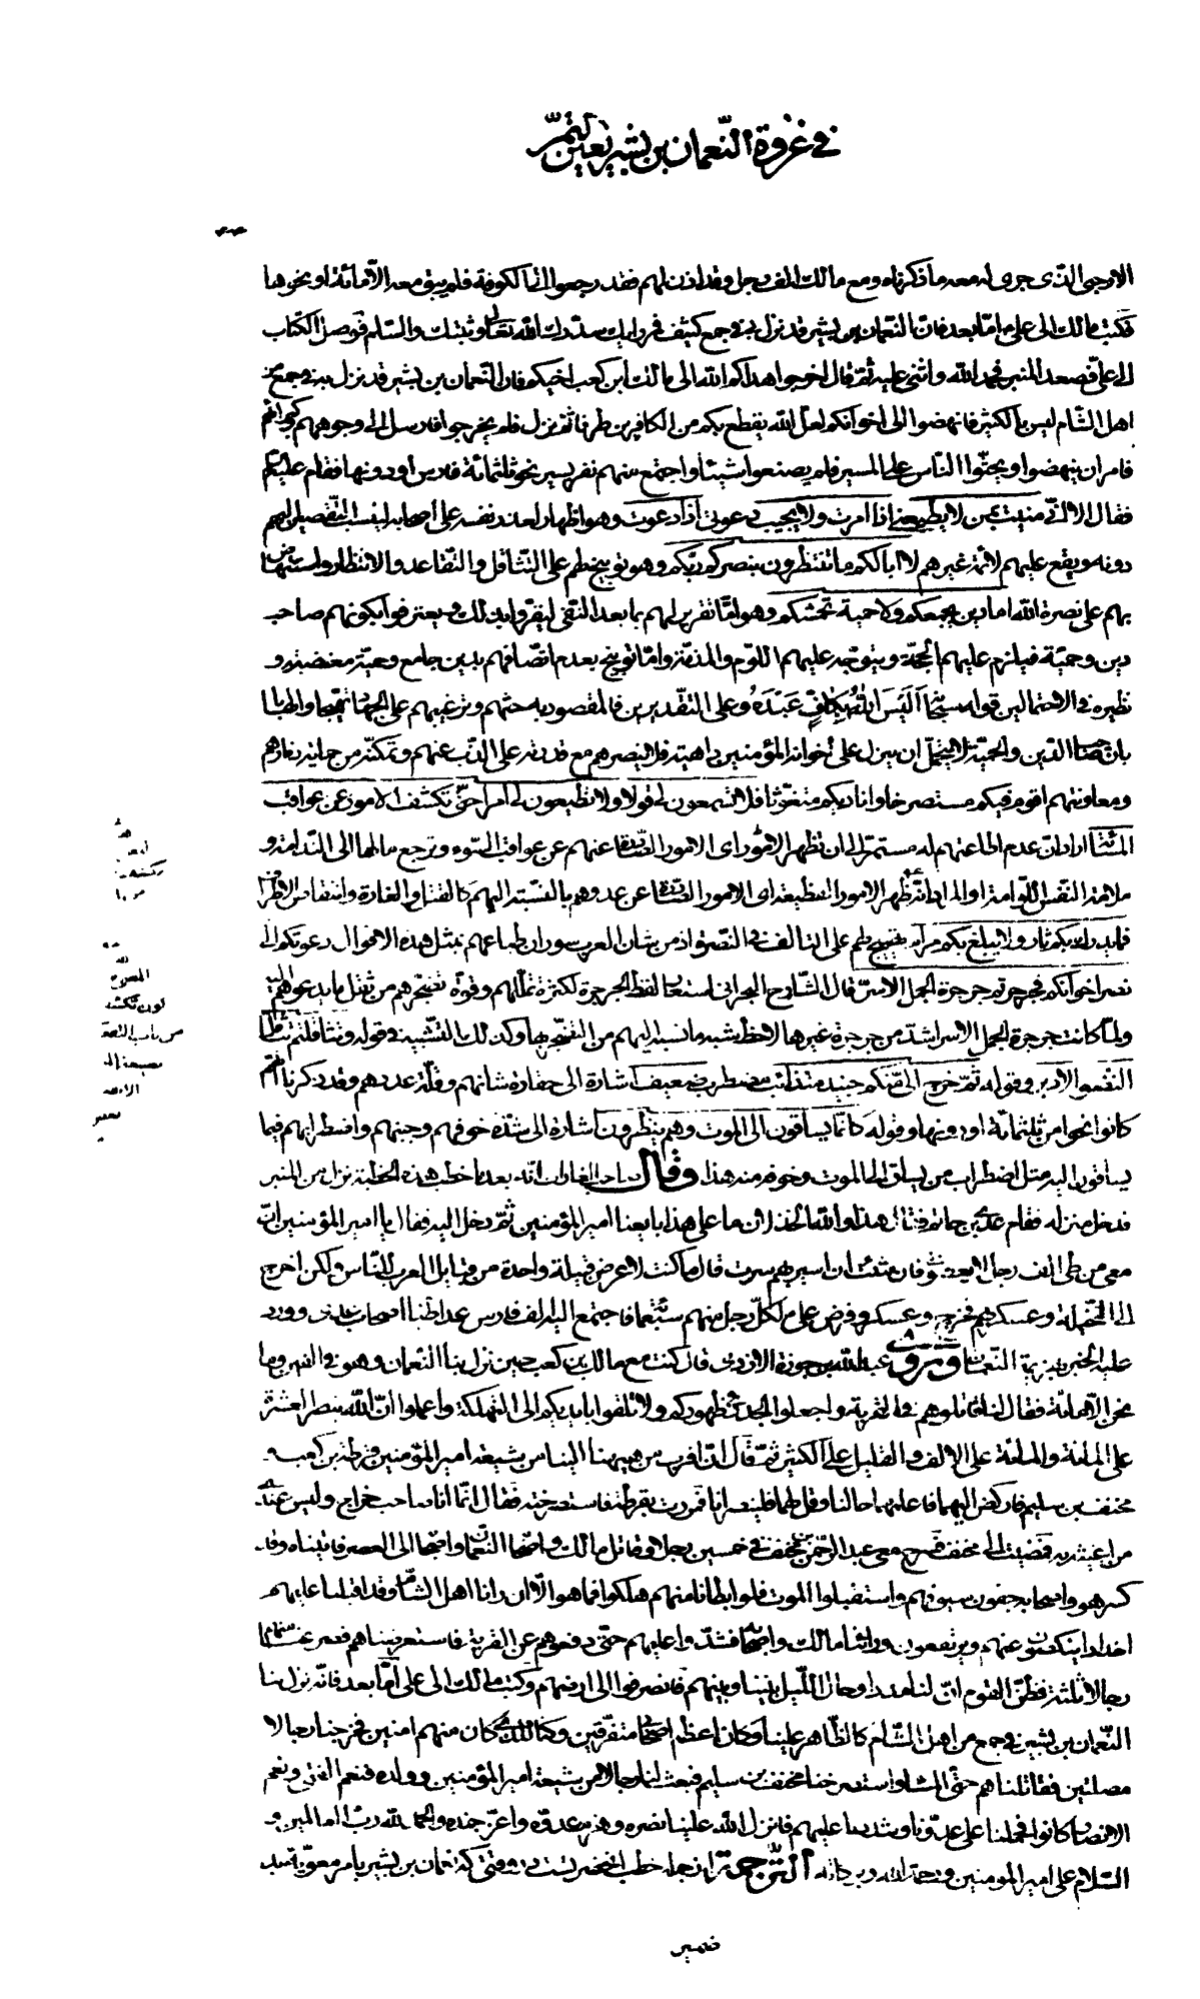 في غزوة النعمان بن بشير بعين التمر
الارحبى الذى جرى له معه ما ذكرناه ومع مالك الف رجل وقد اذن لهم فقد رجعوا الى الكوفة فلم يبق معه الا مائة او نحوها
فكتب مالك الى على اما بعد فان النعمان بن بشير قد نزل بى فى جمع كثيف فر رايك سددك الله تعالى وثبتك والسلام فوصل الكتاب
الى على فصعد المنبر فحمد الله واثنى عليه ثم قال اخرجوا هداكم الله الى مالك ابن كعب اخيكم فان النعمان بن بشير قد نزل به فى جمع من
اهل الشام ليس بالكثير فانهضوا الى اخوانكم لعل الله يقطع بكم من الكافرين طرفا ثم نزل فلم يخرجوا فارسل الى وجوههم وكبرائهم
فامر ان ينهضوا ويحثوا الناس على المسير فلم يصنعوا شيئا واجتمع منهم نفر يسير نحو ثلثمائة فارس او دونها فقام عليه السلم
فقال الا انى منيت بمن لا يطيع اذا امرت ولا يجيب دعوتى اذا دعوت وهو اظهار لعذر نفسه على اصحابه لينسب التقصير اليهم
دونه ويقع عليهم لائمة غيرهم لا ابا لكم ما تنتظرون بنصركم ربكم وهو توبيخ لهم على التثاقل والتقاعد والانتظار واستنهاض
بهم على نصرة الله اما دين يجمعكم ولا حمية تحمشكم وهو اما تقرير لهم بما بعد النفى ليقروا بذلك ويعترفوا بكونهم صاحب
دين وحمية فيلزم عليهم الحجة ويتوجه عليهم اللوم والمذمة واما توبيخ بعدم اتصافهم بدين جامع وحمية مغضبة و
نظيره فى الاحتمالين قوله سبحانه اَلَيْسَ اللهُ بِكافٍ عَبْدَهُ وعلى التقديرين فالمقصود به حثهم وترغيبهم على الجهاد
بان صاحب الدين والحمية لا يتحمل ان ينزل على اخوانه المؤمنين داهية فلا ينصرهم مع قدرته على الذب عنهم وتمكنه من حمايتهم
ومعاونتهم اقوم فيكم مستصرخا واناديكم متغوثا فلا تسمعون لى قولا ولا تطيعون لى امرا حتى تكشف الامور عن عواقب
المساءة اراد ان عدم اطاعتهم له مستمر الى ان تظهر الامور اى الامور الصادرة عنهم عن عواقب السوء وترجع مالها الى الندامة و
ملامة النفس اللوامة او المراد انه تظهر الامور الفظيعة اى الامور الصادرة عن عدوهم بالنسبة اليهم كالقتل والغارة وانتقاص الاطراف
فما يدرك بكم ثار ولا يبلغ بكم مرام تقبيح لهم على التخالف فى النصرة اذ من شان العرب ثوران طباعهم بمثل هذه الاقوال دعوتكم الى
نصر اخوانكم فجرجرتم جرجرة الجمل الاسر قال الشارح البحرانى استعار لفظ الجرجرة لكثرة تململهم وقوة تضجرهم من ثقل ما يدعوهم اليه
ولما كانت جرجرة الجمل الاسر اشد من جرجرة غيرها لاحظ شبه ما نسبه اليهم من التضجر بها وكذلك التشبيه فى قوله وتثاقلتم تثاقل
النضو الادبر وقوله ثم خرج الى منكم جنيد متذائب مضطرب ضعيف اشارة الى حقارة شانهم وقلة عددهم وقد ذكرنا انهم
كانوا نحوا من ثلثمائة او دونها وقوله كانما يساقون الى الموت وهم ينظرون اشارة الى شدة خوفهم وجبنهم واضطرابهم فيما
يساقون اليه مثل اضطراب من يساق الى الموت وخوفه منه هذا وقال صاحب الغارات انه بعد ما خطب هذه الخطبة نزل من المنبر
فدخل منزله فقام عدى بن حاتم فقال هذا والله الخذلان ما على هذا بايعنا امير المؤمنين ثم دخل اليه فقال يا امير المؤمنين ان
معى من طى الف رجل لا يعصونى فان شئت ان اسير بهم سرت قال ما كنت لاعرض قبيلة واحدة من قبايل العرب للناس ولكن اخرج
الى النخيلة وعسكر بهم فخرج وعسكر وفرض على لكل رجل منهم سبعمائة فاجتمع اليه الف فارس عدا طيا اصحاب عدى وورد
عليه الخبر بهزيمة النعمان وروى عبد الله بن حوزة الازدى قال كنت مع مالك بن كعب حين نزل بنا النعمان وهو فى الفين وما
نحن الا مائة فقال لنا قاتلوهم فى القرية واجعلوا الجدر فى ظهوركم ولا تلقوا بايديكم الى التهلكة واعلموا ان الله ينصر العشرة
على المائة والمائة على الالف والقليل على الكثير ثم قال ان اقرب من ههنا الينا من شيعة امير المؤمنين قرظة بن كعب و
مخنف بن سليم فاركض اليهما فاعلمهما حالنا وقل لهما فلينصرانا فمررت بقرظة فاستصرخته فقال انما انا صاحب خراج وليس عندى
من اغيثه به فمضيت الى مخنف فسرح معى عبد الرحمن بن مخنف فى خمسين رجلا وقاتل مالك واصحابه النعمان واصحابه الى العصر فاتيناه وقد
كسر هو واصحابه جفون سيوفهم واستقبلوا الموت فلو ابطانا منهم هلكوا فما هو الا ان رانا اهل الشام وقد اقبلنا عليهم
اخذوا ينكصون عنهم ويرتفعون ورانا مالك واصحابه فشدوا عليهم حتى دفعوهم عن القرية فاستعرضناهم فصرعنا منهم
رجالا ثلثة فظن القوم ان لنا مددا وحال الليل بيننا وبينهم فانصرفوا الى ارضهم وكتب مالك الى على اما بعد فانه نزل بنا
النعمان بن بشير فى جمع من اهل الشام كالظاهر علينا وكان اعظم اصحابى متفرقين وكنا للذى كان منهم امنين فخرجنا رجالا
مصلتين فقاتلناهم حتى المساء واستصرخنا مخنف بن سليم فبعث الينا رجالا من شيعة امير المؤمنين وولده فنعم الفتى ونعم
الانصار كانوا فحملنا على عدونا وشددنا عليهم فانزل الله علينا نصره وهزم عدوه واعز جنده والحمد لله رب العالمين و
السلام على امير المؤمنين ورحمة الله وبركاته الترجمة از جمله خطب انحضرتست در وقتى كه نعمان بن بشير بامر معويه